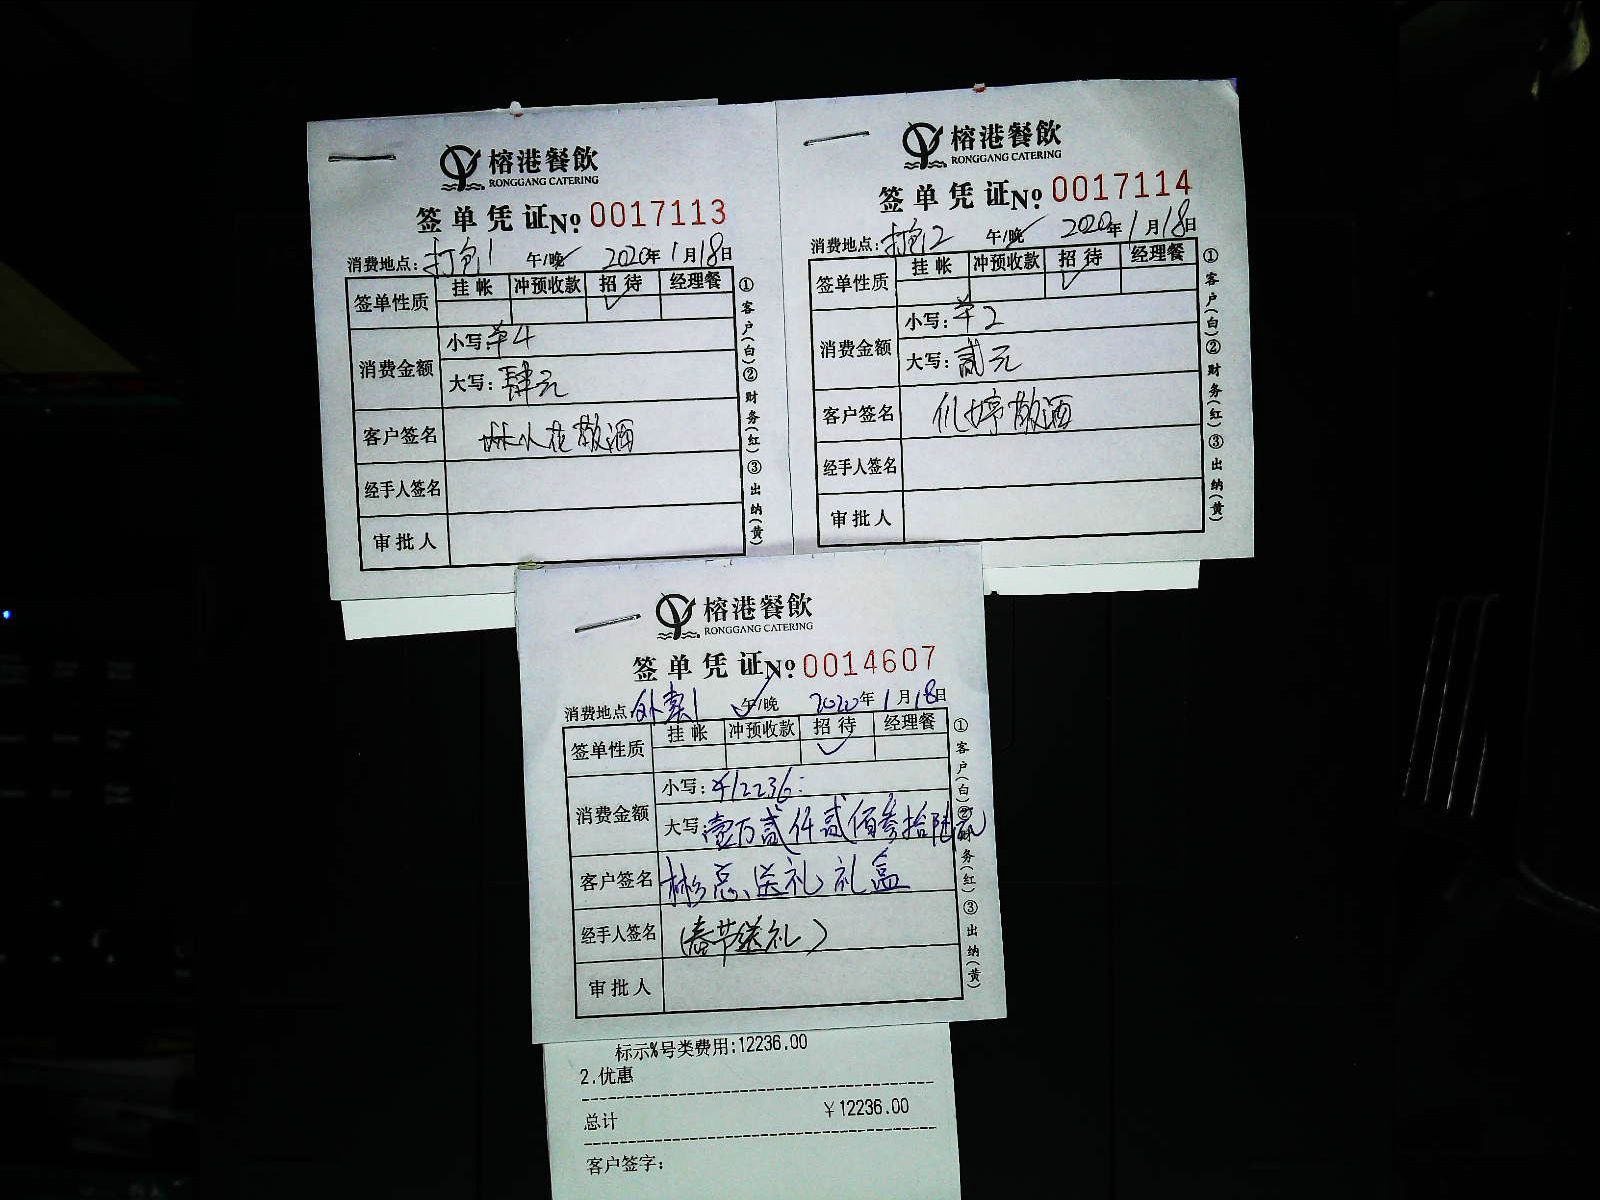 榕港餐飲
RONGGANG CATERING
签单凭证No 0017113
消费地点: 打包1 午/晚 2020年1月18日
签单性质 挂帐 冲预收款 招待 经理餐
消费金额 小写: ¥4
大写: 肆元
客户签名 敬酒
经手人签名
审批人
①客户(白)②财务(红)③出纳(黄)
榕港餐飲
RONGGANG CATERING
签单凭证No 0017114
消费地点: 打包2 午/晚 2020年1月18日
签单性质 挂帐 冲预收款 招待 经理餐
消费金额 小写: ¥2
大写: 贰元
客户签名 婷敬酒
经手人签名
审批人
①客户(白)②财务(红)③出纳(黄)
榕港餐飲
RONGGANG CATERING
签单凭证No 0014607
消费地点: 外卖1 午/晚 2020年1月18日
签单性质 挂帐 冲预收款 招待 经理餐
消费金额 小写: ¥12236:
大写: 壹万贰仟贰佰叁拾陆元
客户签名 彬总送礼礼盒
经手人签名 (春节送礼)
审批人
①客户(白)②财务(红)③出纳(黄)
标示%号类费用:12236.00
2.优惠
总计 ¥12236.00
客户签字: